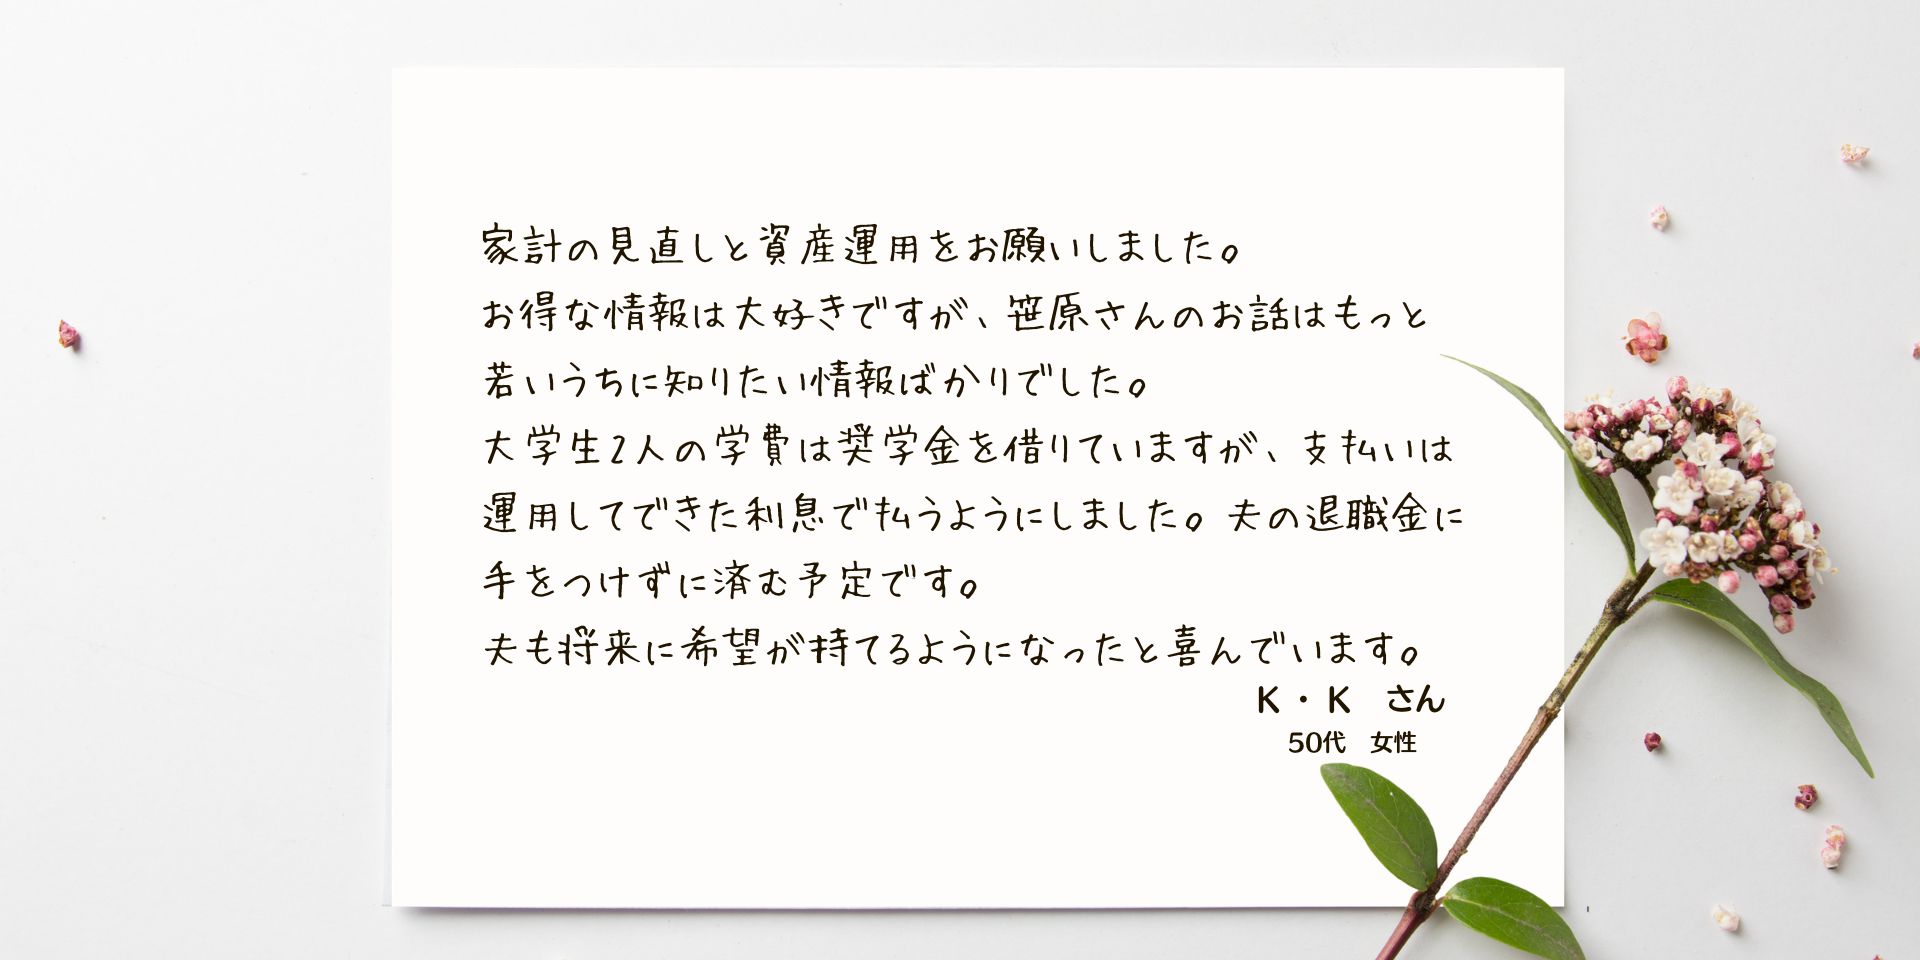 家計の見直しと資産運用をお願いしました。
お得な情報は大好きですが、笹原さんのお話はもっと
若いうちに知りたい情報ばかりでした。
大学生2人の学費は奨学金を借りていますが、支払いは
運用してできた利息で払うようにしました。夫の退職金に
手をつけずに済む予定です。
夫も将来に希望が持てるようになったと喜んでいます。
K・K　さん
50代　女性